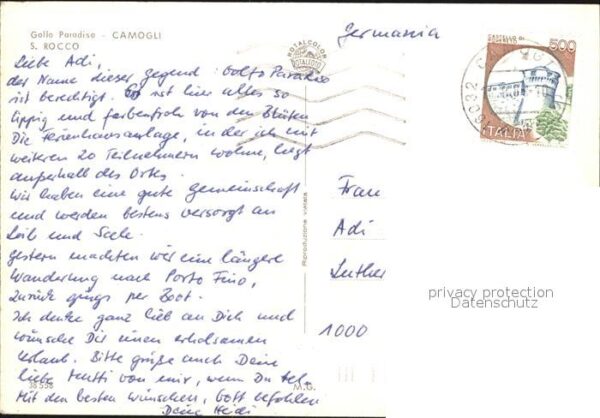 Golfo Paradiso - CAMOGLI
S. ROCCO
Germania
ROTALCOLOR
ROTALFOTO
CASTELLO DI
500
ITALIA
Liebe Adi,
der Name dieser Gegend: Golfo Paradiso
ist berechtigt. Es ist hier alles so
üppig und farbenfroh von den Blüten
Die Ferienhausanlage, in der ich mit
weiteren 20 Teilnehmern wohne, liegt
außerhalb des Ortes.
Wir haben eine gute Gemeinschaft
und werden bestens versorgt an
Leib und Seele.
Gestern machten wir eine längere
Wanderung nach Porto Fino,
zurück gings per Boot.
Ich denke ganz lieb an Dich und
wünsche Dir einen erholsamen
Urlaub. Bitte grüße auch Deine
liebe Mutti von mir, wenn Du tel.
Mit den besten Wünschen, Gott befohlen
Deine Heidi
38558
M.G.
Riproduzione vietata
Frau
Adi
Luther
1000
privacy protection
Datenschutz